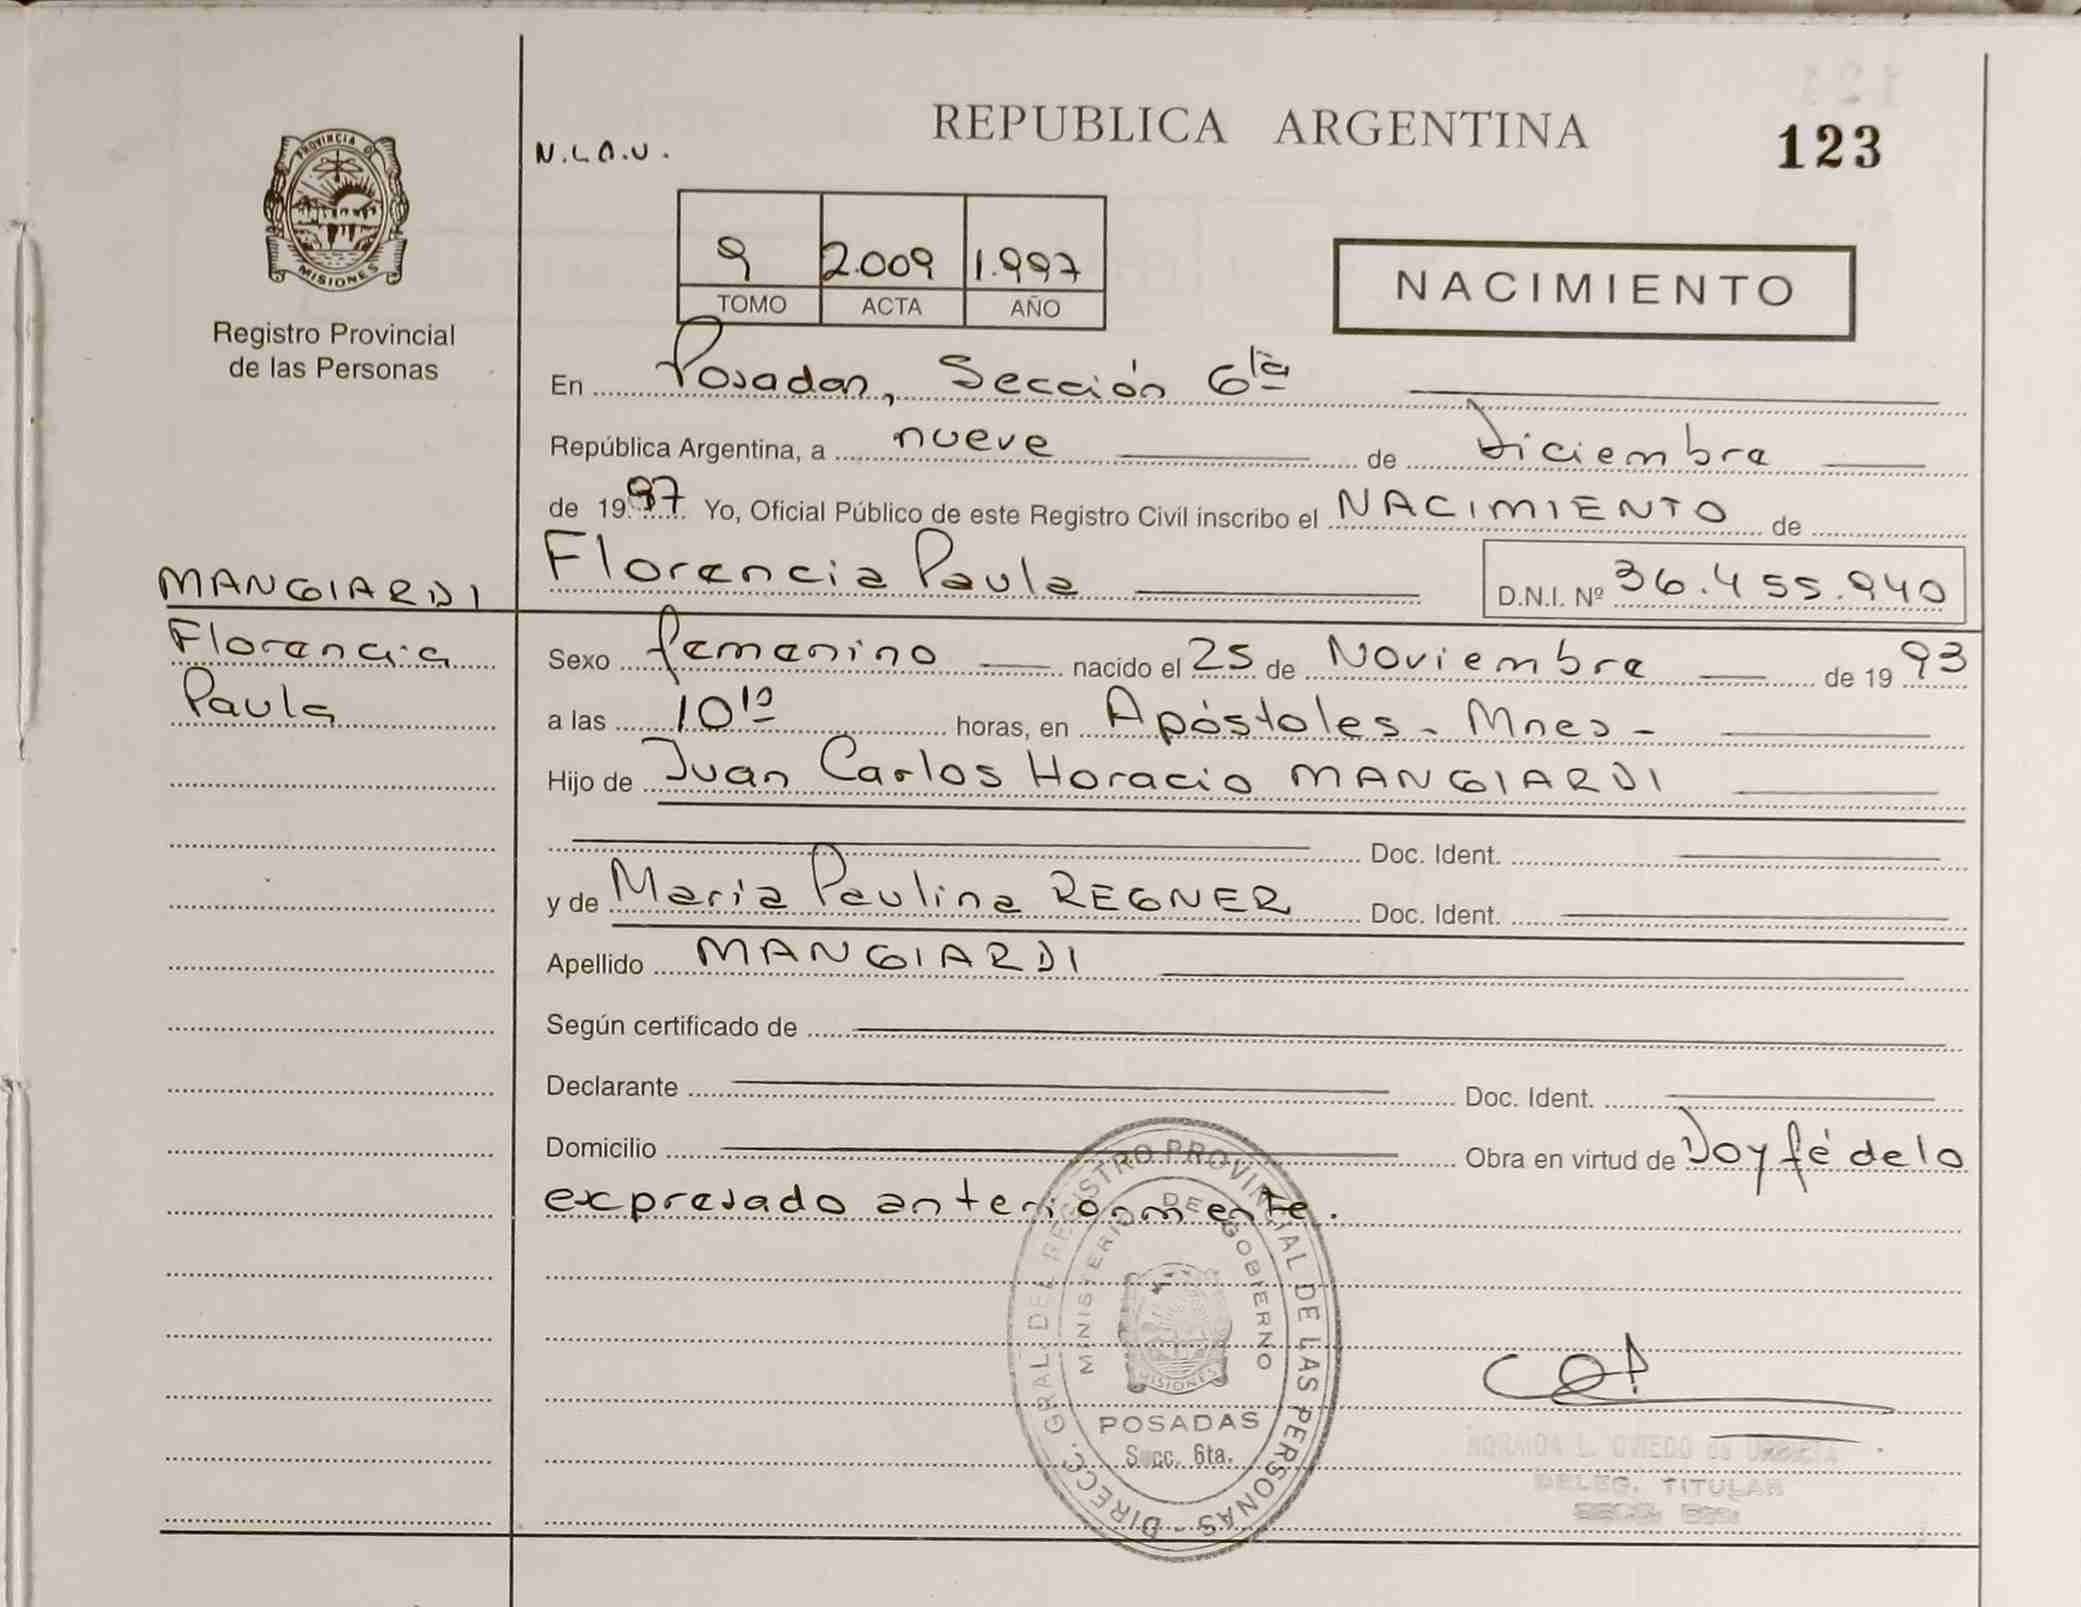 REPUBLICA ARGENTINA
123
N.L.A.U.
PROVINCIA DE
MISIONES
Registro Provincial
de las Personas
9 2.009 1.997
TOMO ACTA AÑO
NACIMIENTO
En Posadas, Sección 6ta
República Argentina, a nueve de Diciembre
de 1997 Yo, Oficial Público de este Registro Civil inscribo el NACIMIENTO de
Florencia Paula D.N.I. Nº 36.455.940
MANGIARDI
Florencia
Paula
Sexo femenino nacido el 25 de Noviembre de 1993
a las 10 10 horas, en Apóstoles - Mnes -
Hijo de Juan Carlos Horacio MANGIARDI
Doc. Ident.
y de María Paulina REGNER Doc. Ident.
Apellido MANGIARDI
Según certificado de
Declarante Doc. Ident.
Domicilio Obra en virtud de Doy fé de lo
expresado anteriormente.
DIRECC. GRAL. DEL REGISTRO PROVINCIAL DE LAS PERSONAS -
MINISTERIO DE GOBIERNO
MISIONES
POSADAS
Secc. 6ta.
L. OVIEDO de
DELEG. TITULAR
SECC. 6ta.